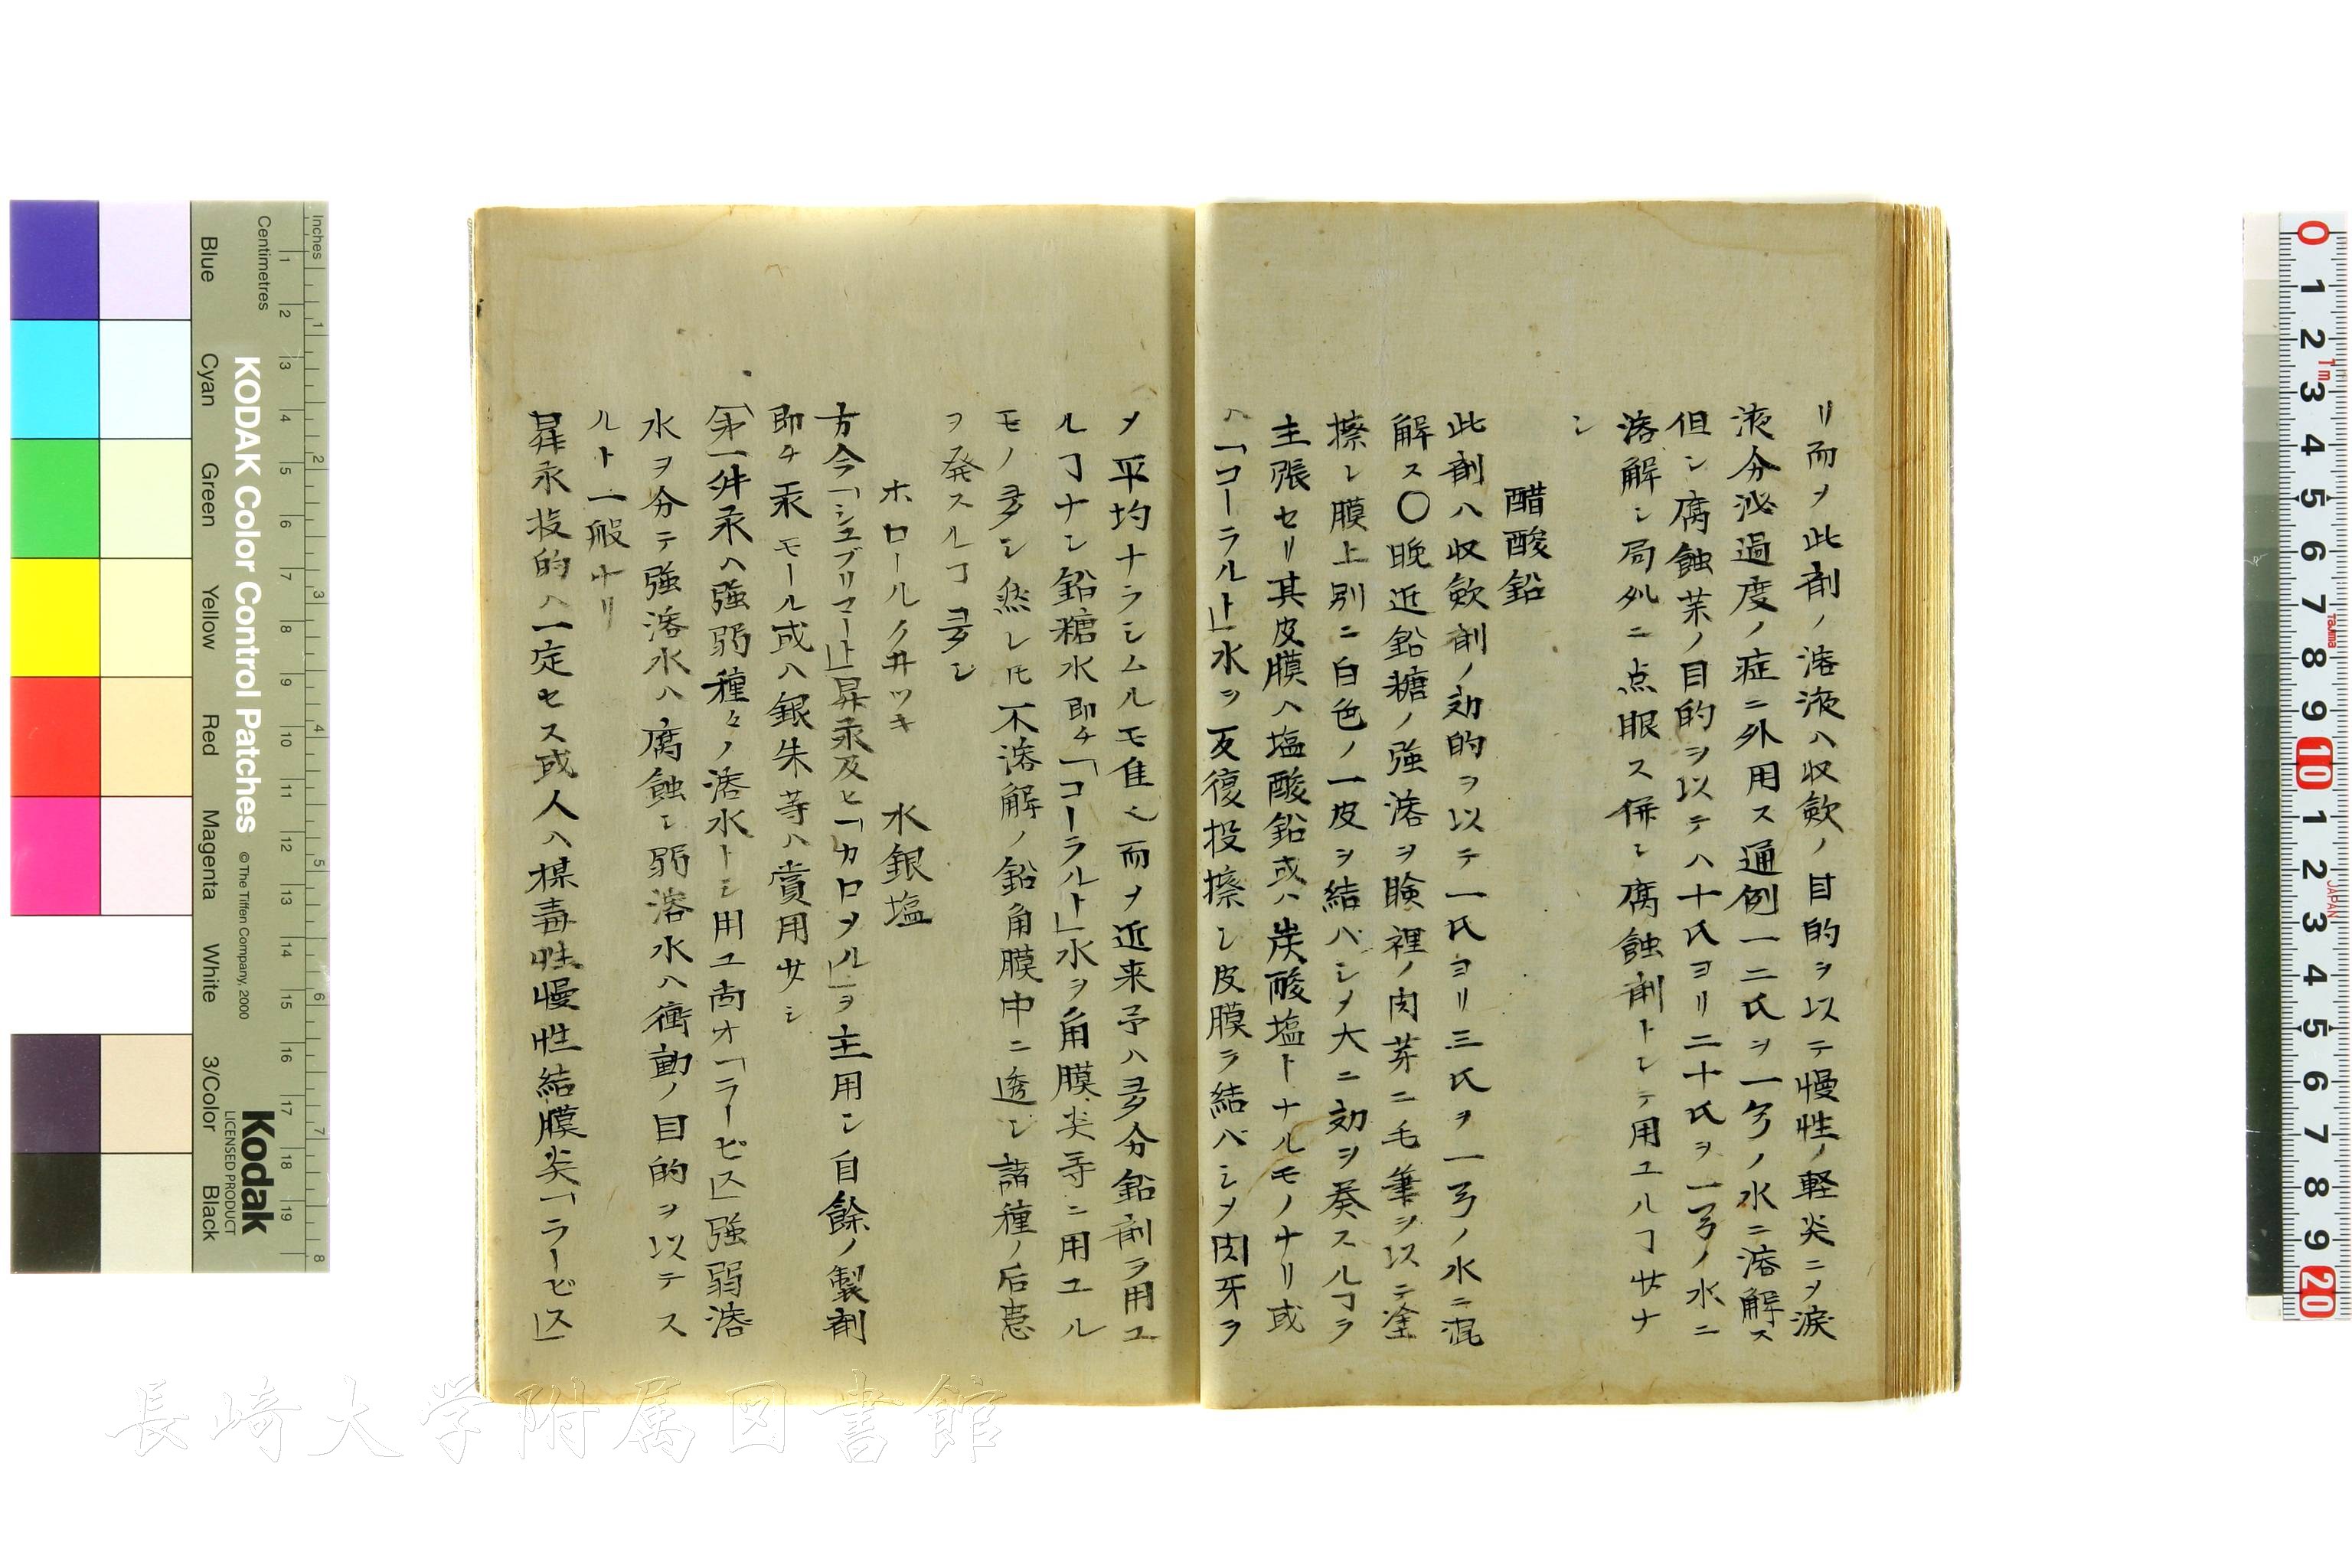 リ而ヲ此剤ノ溶液ハ収歛ノ目的ヲ以テ慢性ノ軽炎ニヲ涙
液分泌過度ノ症ニ外用ス通例一二氏ヲ一弓ノ水ニ溶解ス
但シ腐蝕薬ノ目的ヲ以テハ十氏ヨリ二十氏ヲ一弓ノ水ニ
溶解シ局処ニ点眼ス併シ腐蝕剤トシテ用ユルヿ少ナ
シ
醋酸鉛
此剤ハ収歛剤ノ効的ヲ以テ一氏ヨリ三氏ヲ一弓ノ水ニ混
解ス〇晩近鉛糖ノ強溶ヲ瞼裡ノ肉芽ニ毛筆ヲ以テ塗
擦シ膜上別ニ白色ノ一皮ヲ結バシメ大ニ効ヲ奏スルヿヲ
主張セリ其皮膜ハ塩酸鉛或ハ炭酸塩トナルモノナリ或
ハ「コーラルト」水ヲ反復投擦シ皮膜ヲ結バシメ肉牙ヲ
メ平均ナラシムルモ佳也而ヲ近来予ハ多分鉛剤ヲ用ユ
ルヿナシ鉛糖水即チ「コーラルト」水ヲ角膜炎等ニ用ユル
モノ多シ然レ𪜈不溶解ノ鉛角膜中ニ透シ諸種ノ后患
ヲ発スルヿ多シ
ホロールクヰツキ 水銀塩
方今「シュブリマート」昇汞及ヒ「カロヲル」ヲ主用シ自餘ノ製剤
即チ汞モール或ハ銀朱等ハ賞用少シ
(第一)昇汞ハ強弱種々ノ溶水トシ用ユ尚オ「ラーピス」強弱溶
水ヲ分テ強溶水ハ腐蝕シ弱溶水ハ衝動ノ目的ヲ以テス
ルト一般ナリ
昇汞投的ハ一定セス或人ハ楳毒性慢性結膜炎「ラーピス」
KODAK Color Control Patches
© The Tiffen Company, 2000
Kodak
LICENSED PRODUCT
Inches
Centimetres
Blue Cyan Green Yellow Red Magenta White 3/Color Black
長崎大学附属図書館